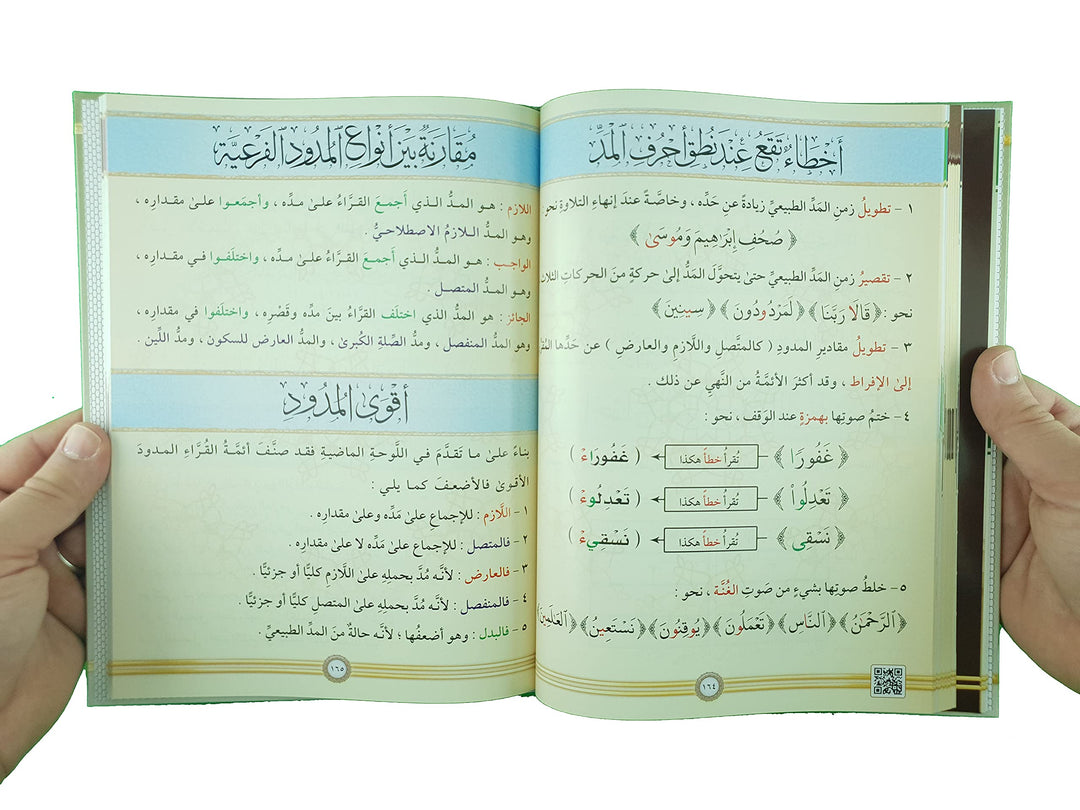 أخطاء تقع عند نطق أحرف المد
١ - تطويلُ زمنِ المَدِّ الطبيعيِّ زيادةً عن حَدِّه ، وخاصَّةً عندَ إنهاءِ التلاوةِ نحو :
﴿ صُحُفِ إِبْرَاهِيمَ وَمُوسَىٰ ﴾
٢ - تقصيرُ زمنِ المَدِّ الطبيعيِّ حتىٰ يتحوَّلَ المَدُّ إلىٰ حركةٍ منَ الحركاتِ
نحو : ﴿ قَالَا رَبَّنَا ﴾ ﴿ لَمَرْدُودُونَ ﴾ ﴿ سِينِينَ ﴾
٣ - تطويلُ مقاديرِ المدودِ ( كالمتَّصلِ واللَّازمِ والعارضِ ) عن حَدِّها
إلىٰ الإفراط ، وقد أكثرَ الأئمَّةُ من النَّهيِ عن ذلك .
٤ - ختمُ صوتِها بهمزةٍ عند الوَقف ، نحو :
﴿ غَفُورًا ﴾ تُقرأُ خطأً هكذا ( غَفُورَاءْ )
﴿ تَعْدِلُوا۟ ﴾ تُقرأُ خطأً هكذا ( تَعْدِلُوءْ )
﴿ نَسْقِى ﴾ تُقرأُ خطأً هكذا ( نَسْقِيءْ )
٥ - خلطُ صوتِها بشيءٍ من صَوتِ الغُنَّة ، نحو :
﴿ ٱلرَّحْمَٰنُ ﴾ ﴿ ٱلنَّاسِ ﴾ ﴿ تَعْمَلُونَ ﴾ ﴿ يُوقِنُونَ ﴾ ﴿ نَسْتَعِينُ ﴾ ﴿ ٱلْعَالَمِينَ ﴾
١٦٤
مُقَارَنَةٌ بَيْنَ أَنْوَاعِ المُدُودِ الفَرْعِيَّة
اللازم : هـو المـدُّ الـذي أَجمـعَ القرَّاءُ علـىٰ مـدِّه ، وأجمَعـوا علـىٰ مقـدارِه ،
وهـو المـدُّ الـلازمُ الاصطلاحيُّ .
الواجب : هـو المـدُّ الـذي أَجمـعَ القرَّاءُ علـىٰ مـدِّه ، واختلَفـوا في مقـدارِه ،
وهـو المـدُّ المتصـل .
الجائز : هو المدُّ الذي اختلَف القرَّاءُ بينَ مدِّه وقَصْرِه ، واختلَفوا في مقدارِه ،
وهو المدُّ المنفصل ، ومدُّ الصِّلةِ الكُبرىٰ ، والمدُّ العارض للسكون ، ومدُّ اللِّين .
أَقْوَى المُدُودِ
بناءً علىٰ ما تَقدَّمَ في اللَّوحةِ الماضيةِ فقد صنَّفَ أئمَّةُ القُرَّاءِ المدودَ
الأقوىٰ فالأضعفَ كما يلي :
١ - اللَّازم : للإجماعِ علىٰ مَدِّه وعلىٰ مقدارِه .
٢ - فالمتصل : للإجماعِ علىٰ مَدِّه لا علىٰ مقدارِه .
٣ - فالعارض : لأنَّه مُدَّ بحملِهِ علىٰ اللَّازمِ كليًّا أو جزئيًّا .
٤ - فالمنفصل : لأنَّه مُدَّ بحملِهِ علىٰ المتصلِ كليًّا أو جزئيًّا .
٥ - فالبدل : وهو أضعفُها ؛ لأنَّه حالةٌ منَ المدِّ الطبيعيِّ .
١٦٥